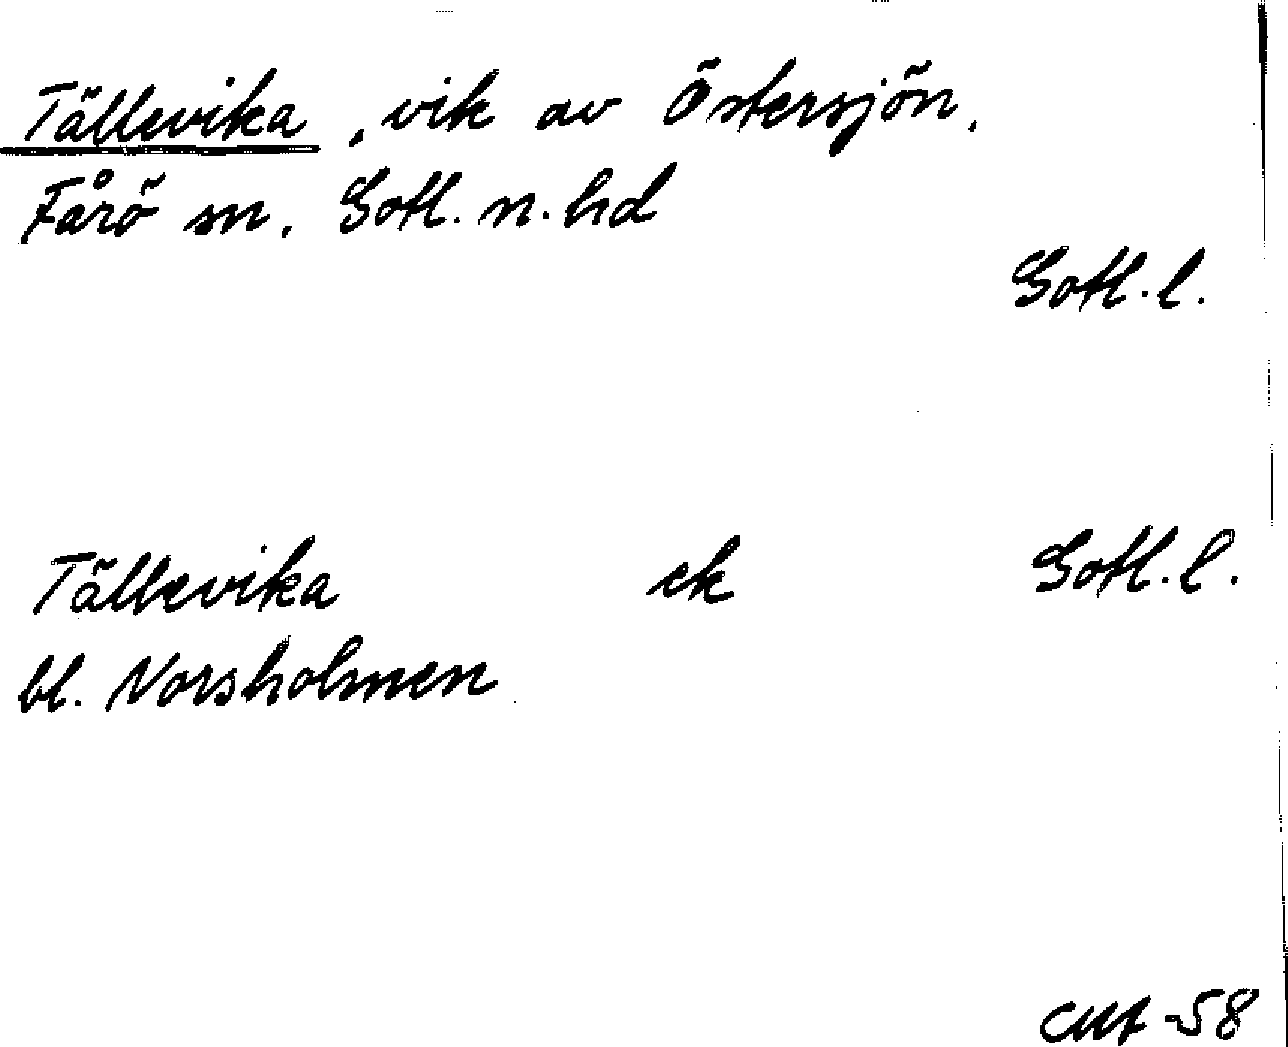 Tällevika, vik av Östersjön,
Fårö sn, Gotl. n. hd
Gotl. l.
Tällevika ek Gotl. l.
bl. Norsholmen
-58